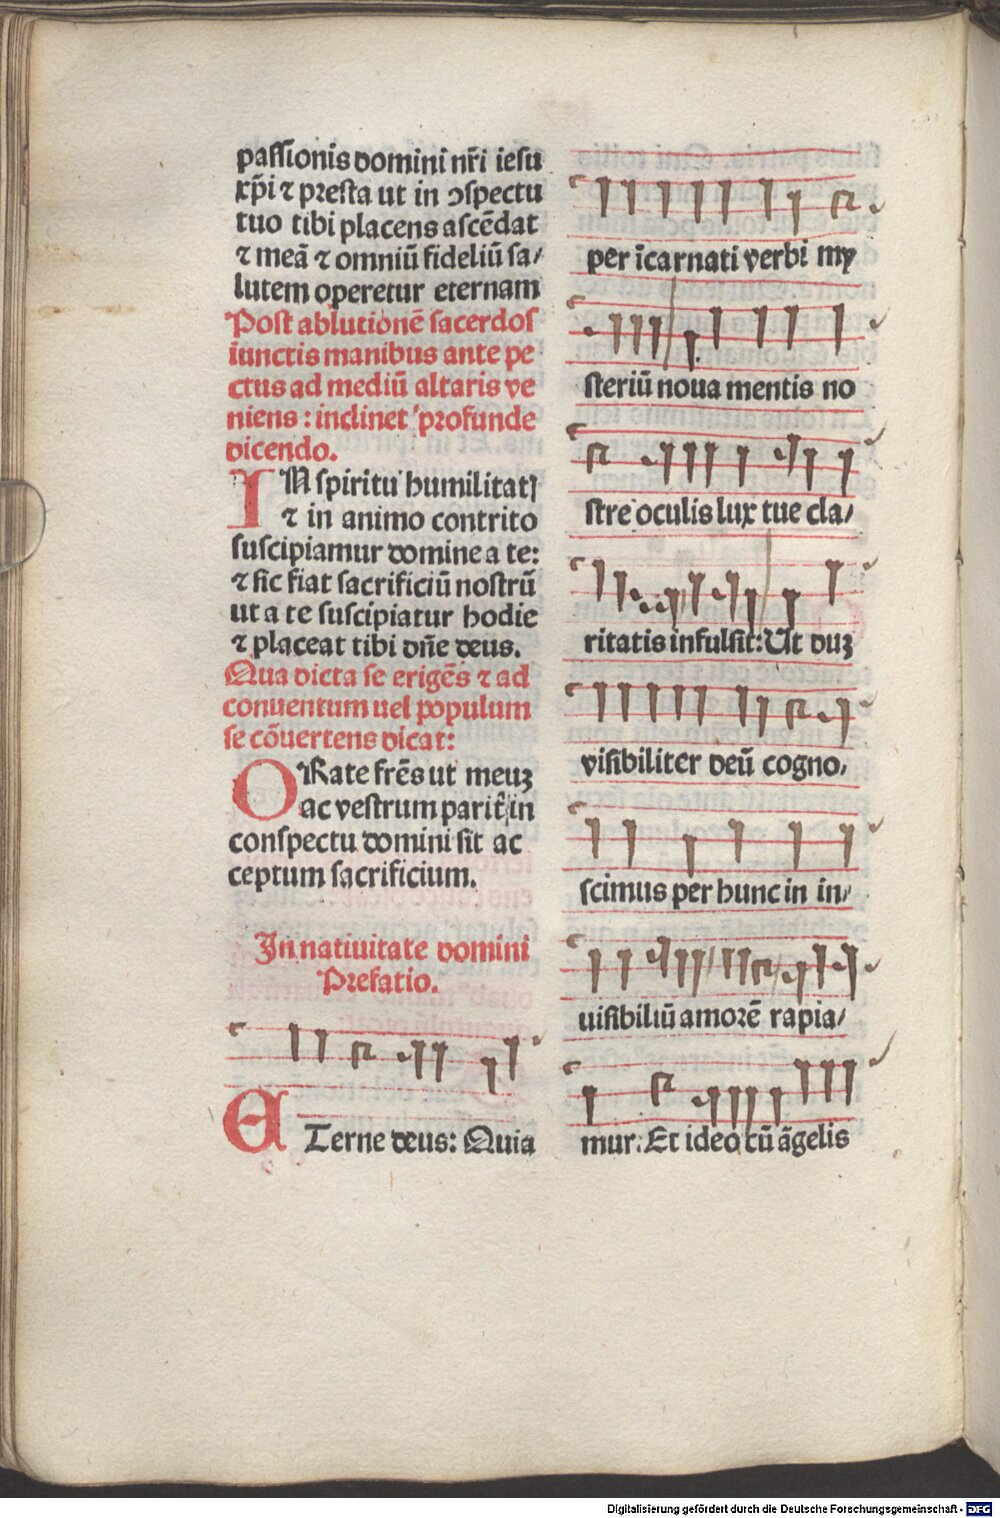 paſſionis domini nr̄i ieſu
xp̄i ⁊ preſta ut in ↄſpectu
tuo tibi placens aſcēdat
⁊ meā ⁊ omniū fideliū ſa/
lutem operetur eternam
Poſt ablutionē ſacerdoſ
iunctis manibus ante pe
ctus ad mediū altaris ve
niens : inclinet profunde
dicendo.
IN ſpiritu humilitatꝭ
⁊ in animo contrito
ſuſcipiamur domine a te:
⁊ ſic fiat ſacrificiū noſtrū
ut a te ſuſcipiatur hodie
⁊ placeat tibi dn̄e deus.
Qua dicta ſe erigēs ⁊ ad
conuentum uel populum
ſe cōuertens dicat:
ORate fr̄es ut meuꝫ
ac veſtrum parit̄ in
conſpectu domini ſit ac
ceptum ſacrificium.
In natiuitate domini
Prefatio.
ETerne deus: Quia
per īcarnati verbi my
ſteriū noua mentis no
ſtre oculis lux tue cla/
ritatis infulſit: Ut duꝫ
viſibiliter deū cogno/
ſcimus per hunc in in/
uiſibiliū amorē rapia/
mur. Et ideo cū āgelis
Digitalisierung gefördert durch die Deutsche Forschungsgemeinschaft - DFG